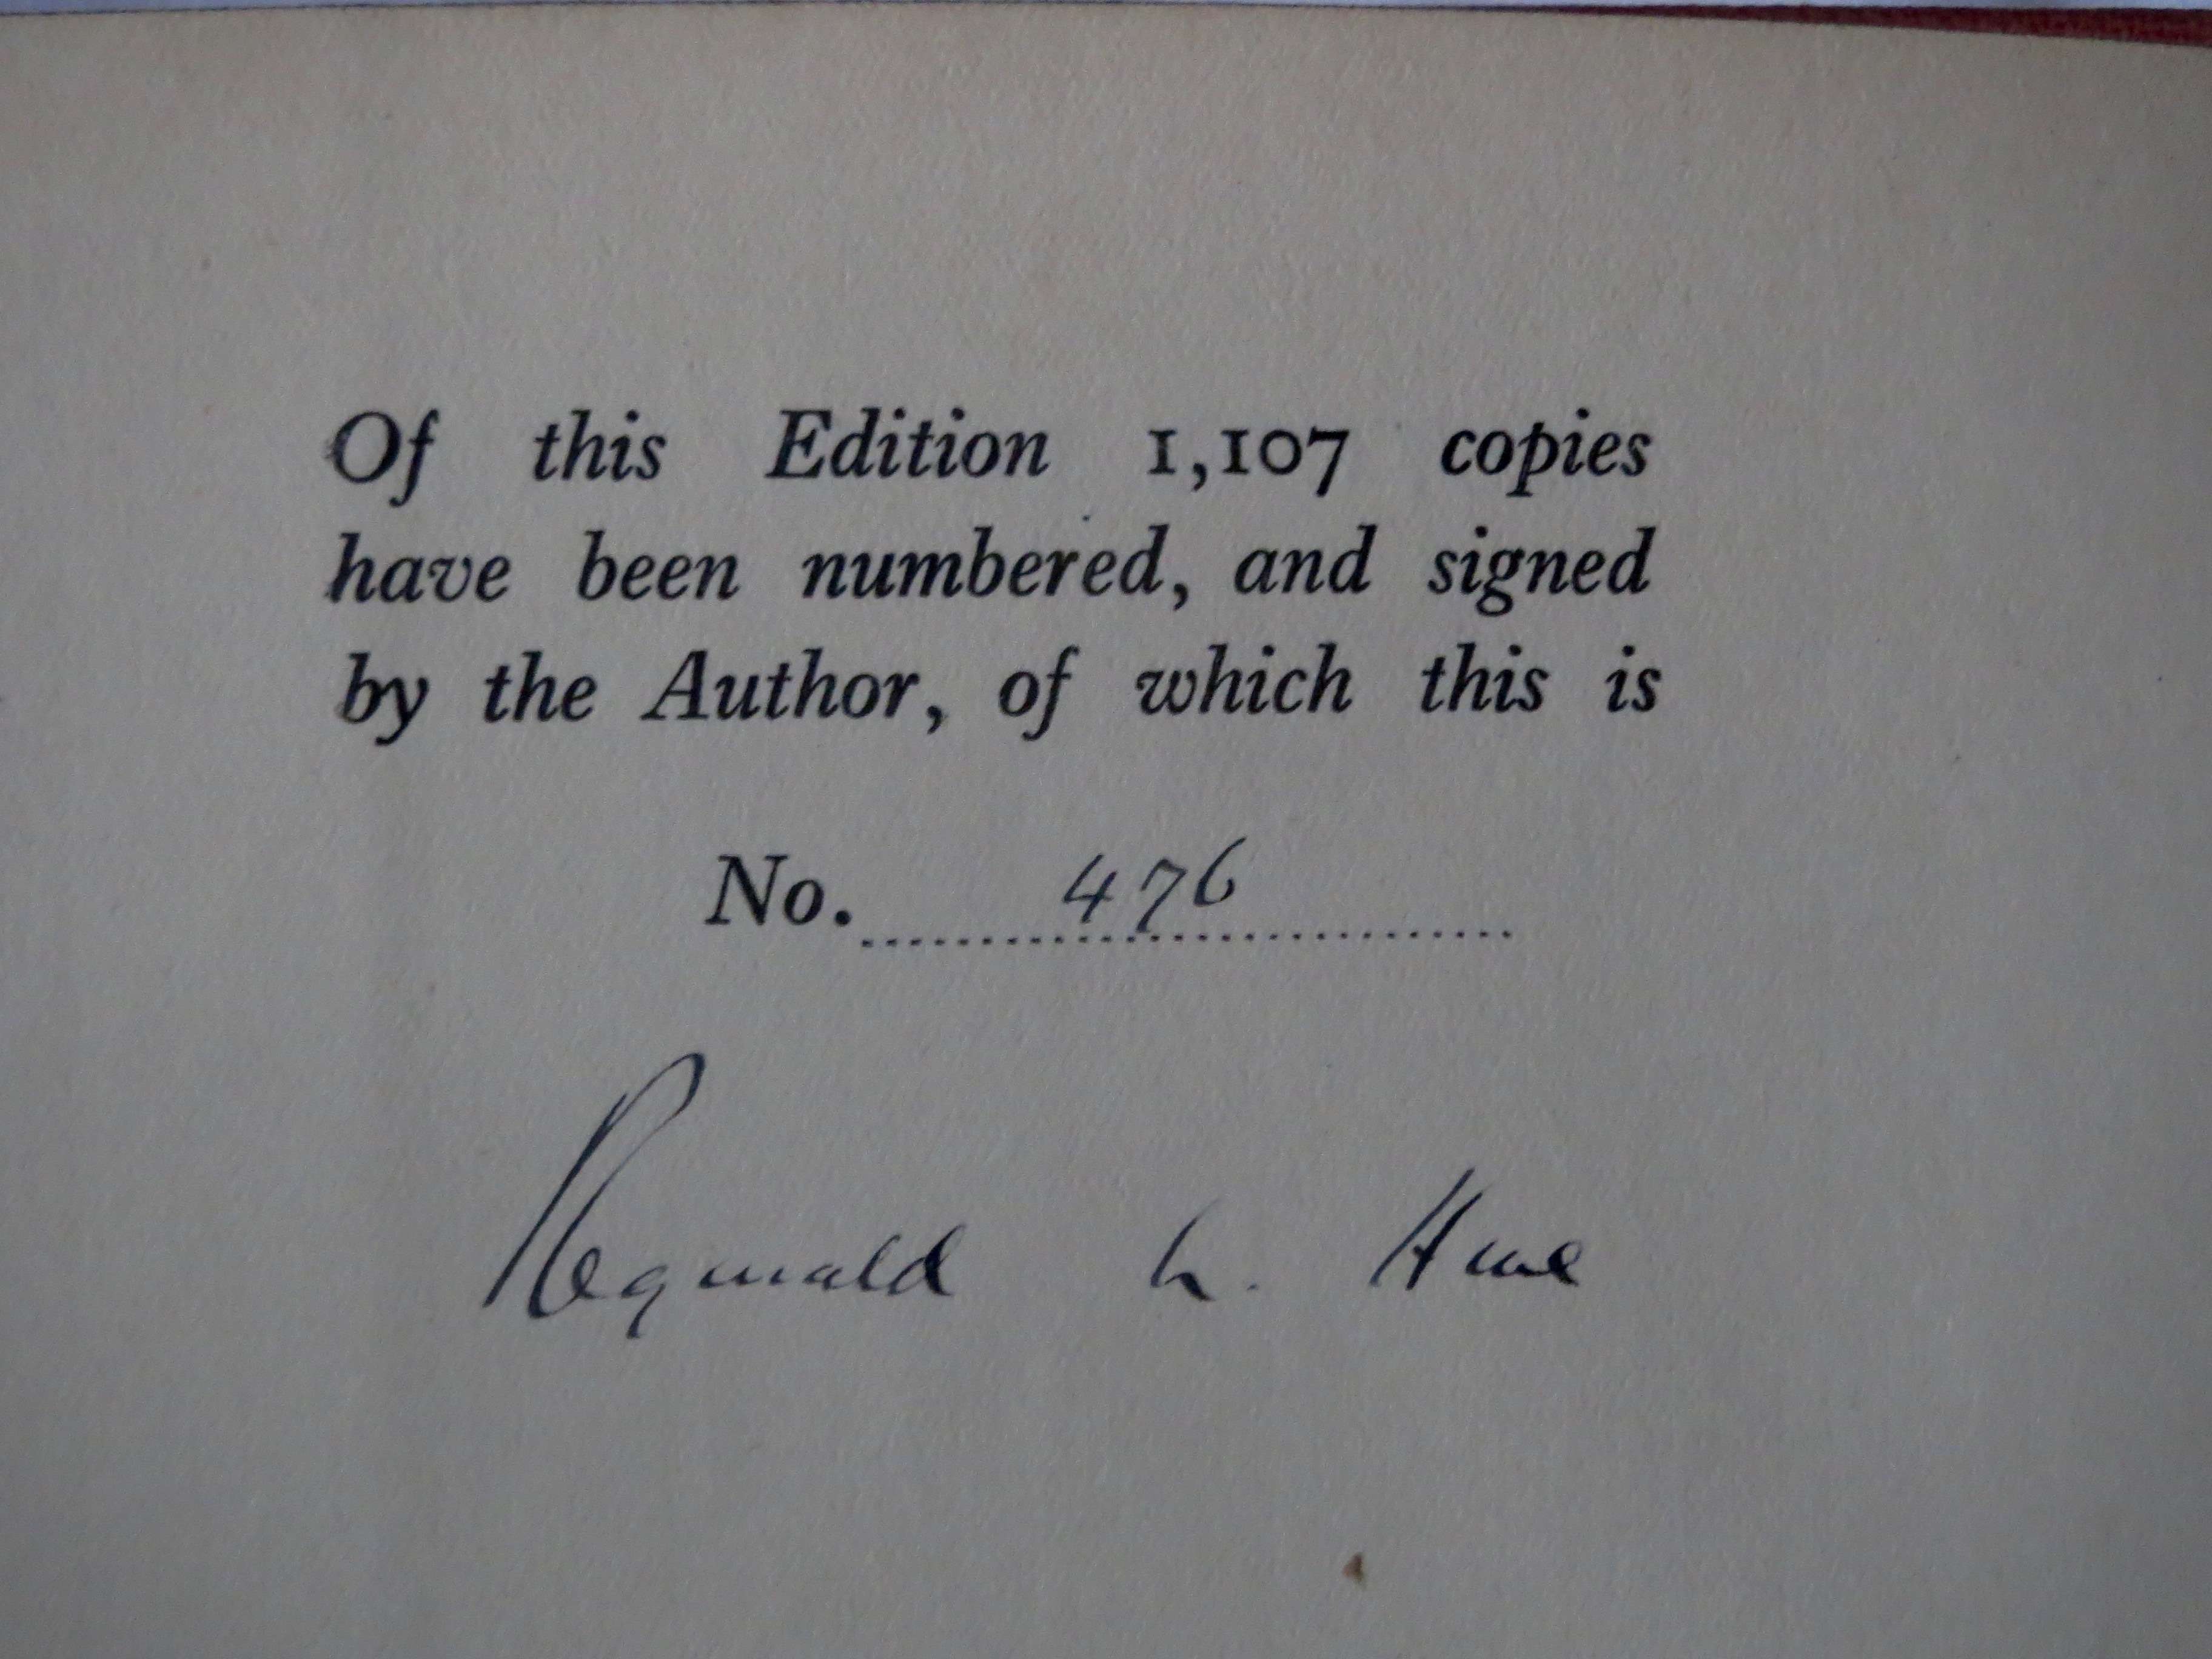 Of this Edition 1,107 copies
have been numbered, and signed
by the Author, of which this is
No. 476
Reginald L. Hine